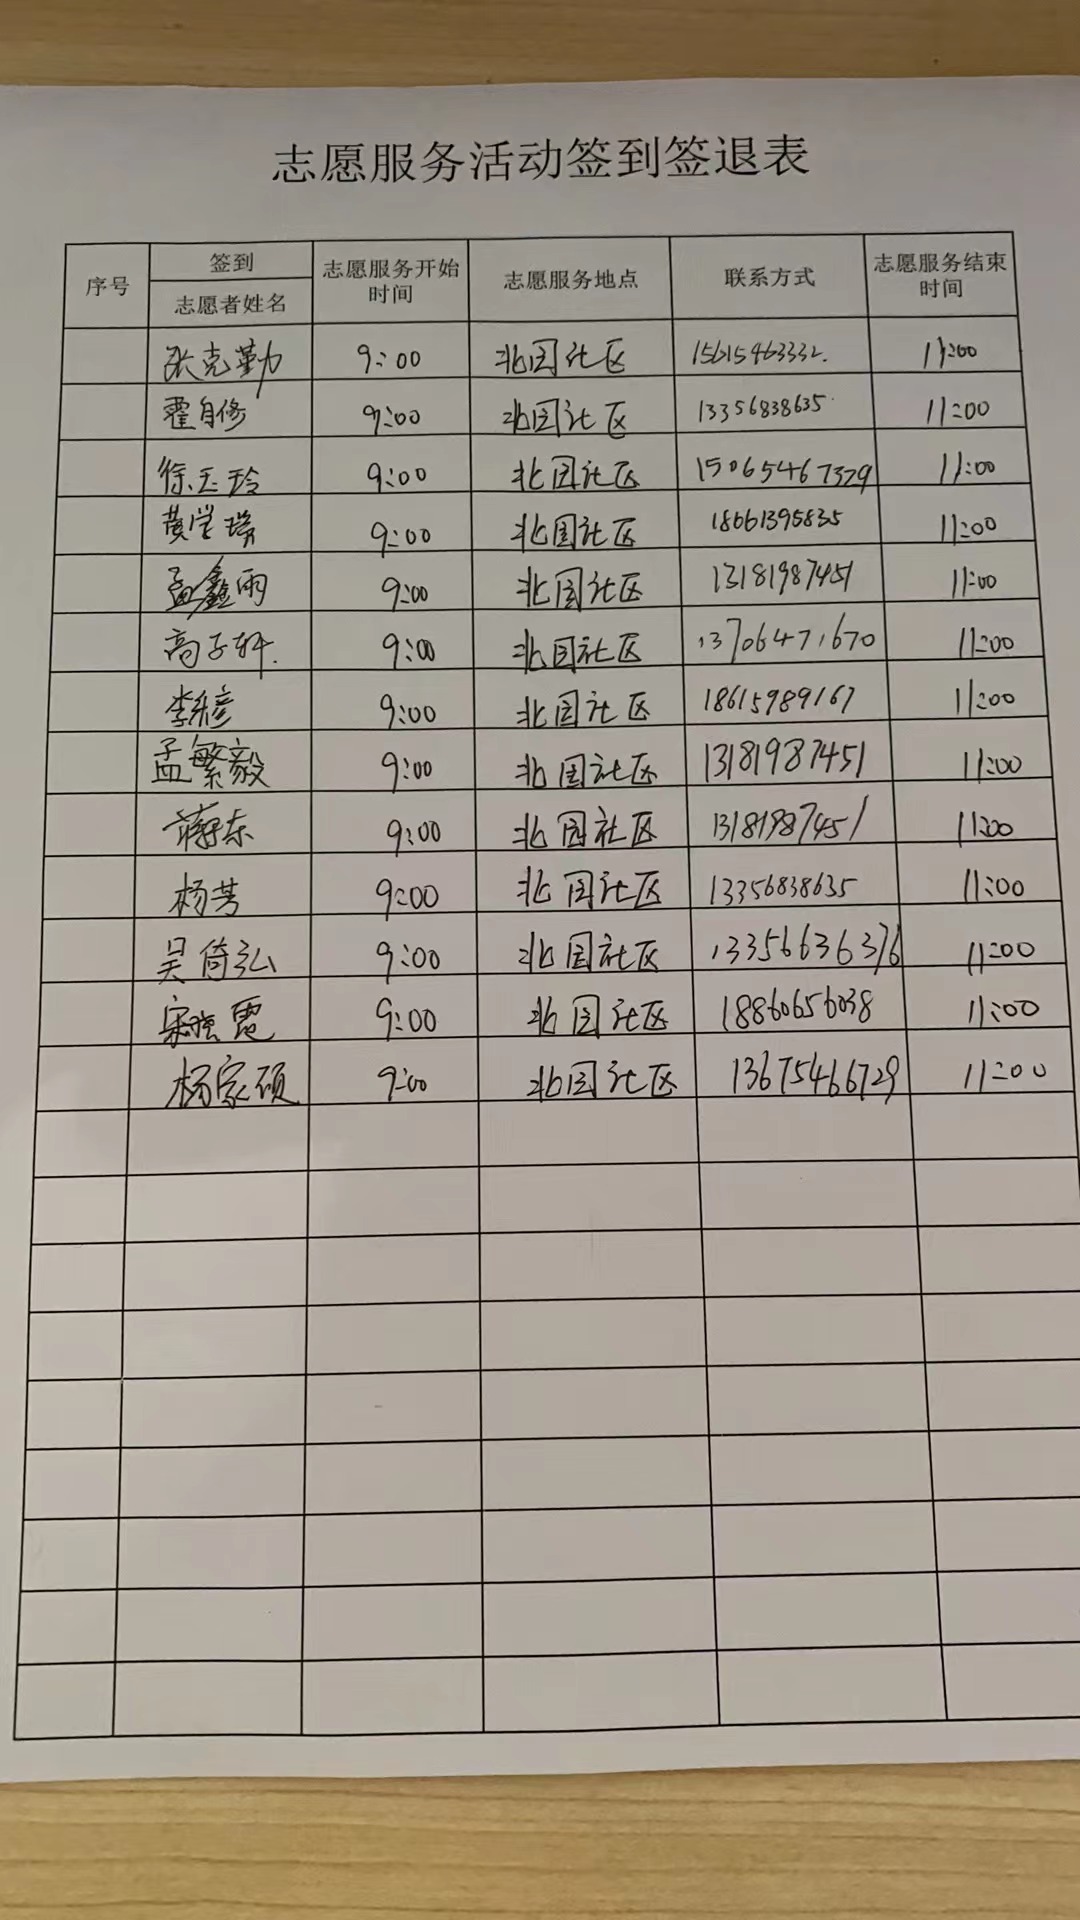 志愿服务活动签到签退表
序号 签到 志愿者姓名 志愿服务开始时间 志愿服务地点 联系方式 志愿服务结束时间
张克勤 9:00 北园社区 15615463332. 11:00
霍自修 9:00 北园社区 13356838635 11:00
徐玉玲 9:00 北园社区 15065467379 11:00
黄莹 9:00 北园社区 18661395835 11:00
孟鑫雨 9:00 北园社区 13181987451 11:00
高子轩. 9:00 北园社区 13706471670 11:00
李彦 9:00 北园社区 18615989167 11:00
孟繁毅 9:00 北园社区 13181987451 11:00
蒋东 9:00 北园社区 13181987451 11:00
杨芳 9:00 北园社区 13356838635 11:00
吴倚弘 9:00 北园社区 13356636376 11:00
宋 霓 9:00 北园社区 18860656038 11:00
杨家硕 9:00 北园社区 13675466729 11:00